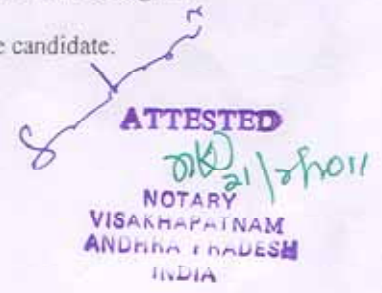 e candidate.
ATTESTED
NOTARY
VISAKHAPATNAM
ANDHRA PRADESH
INDIA